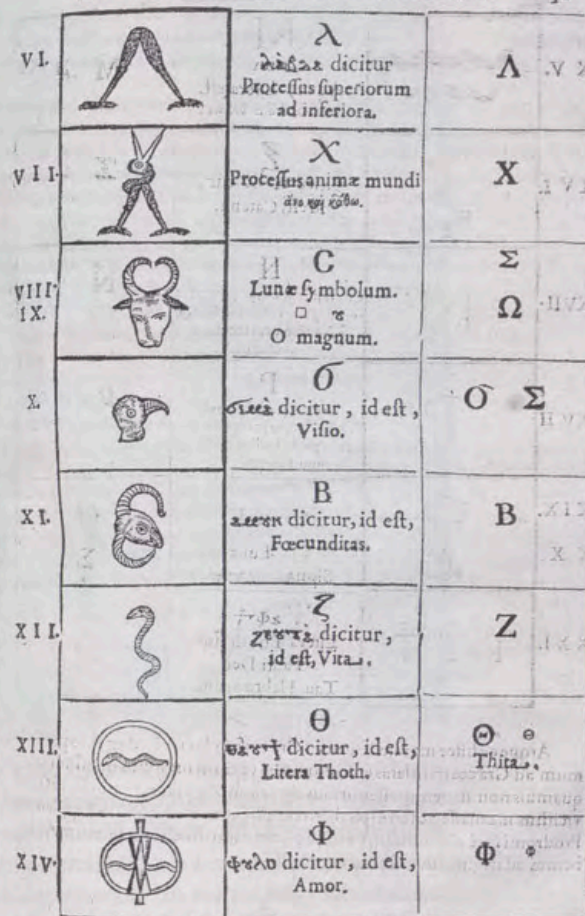 VI.
λ
dicitur
Proteſſus ſuperiorum
ad inferiora.
Λ
VII.
X
Proteſſus animæ mundi
X
VIII.
IX.
C
Lunæ ſymbolum.
O magnum.
Σ
Ω
X.
σ
dicitur, id eſt,
Viſio.
σ Σ
XI.
B
dicitur, id eſt,
Fœcunditas.
B
XII.
ζ
dicitur,
id eſt, Vita.
Z
XIII.
Θ
dicitur, id eſt,
Litera Thoth.
Θ Θ
Thita.
XIV.
Φ
dicitur, id eſt,
Amor.
Φ Φ